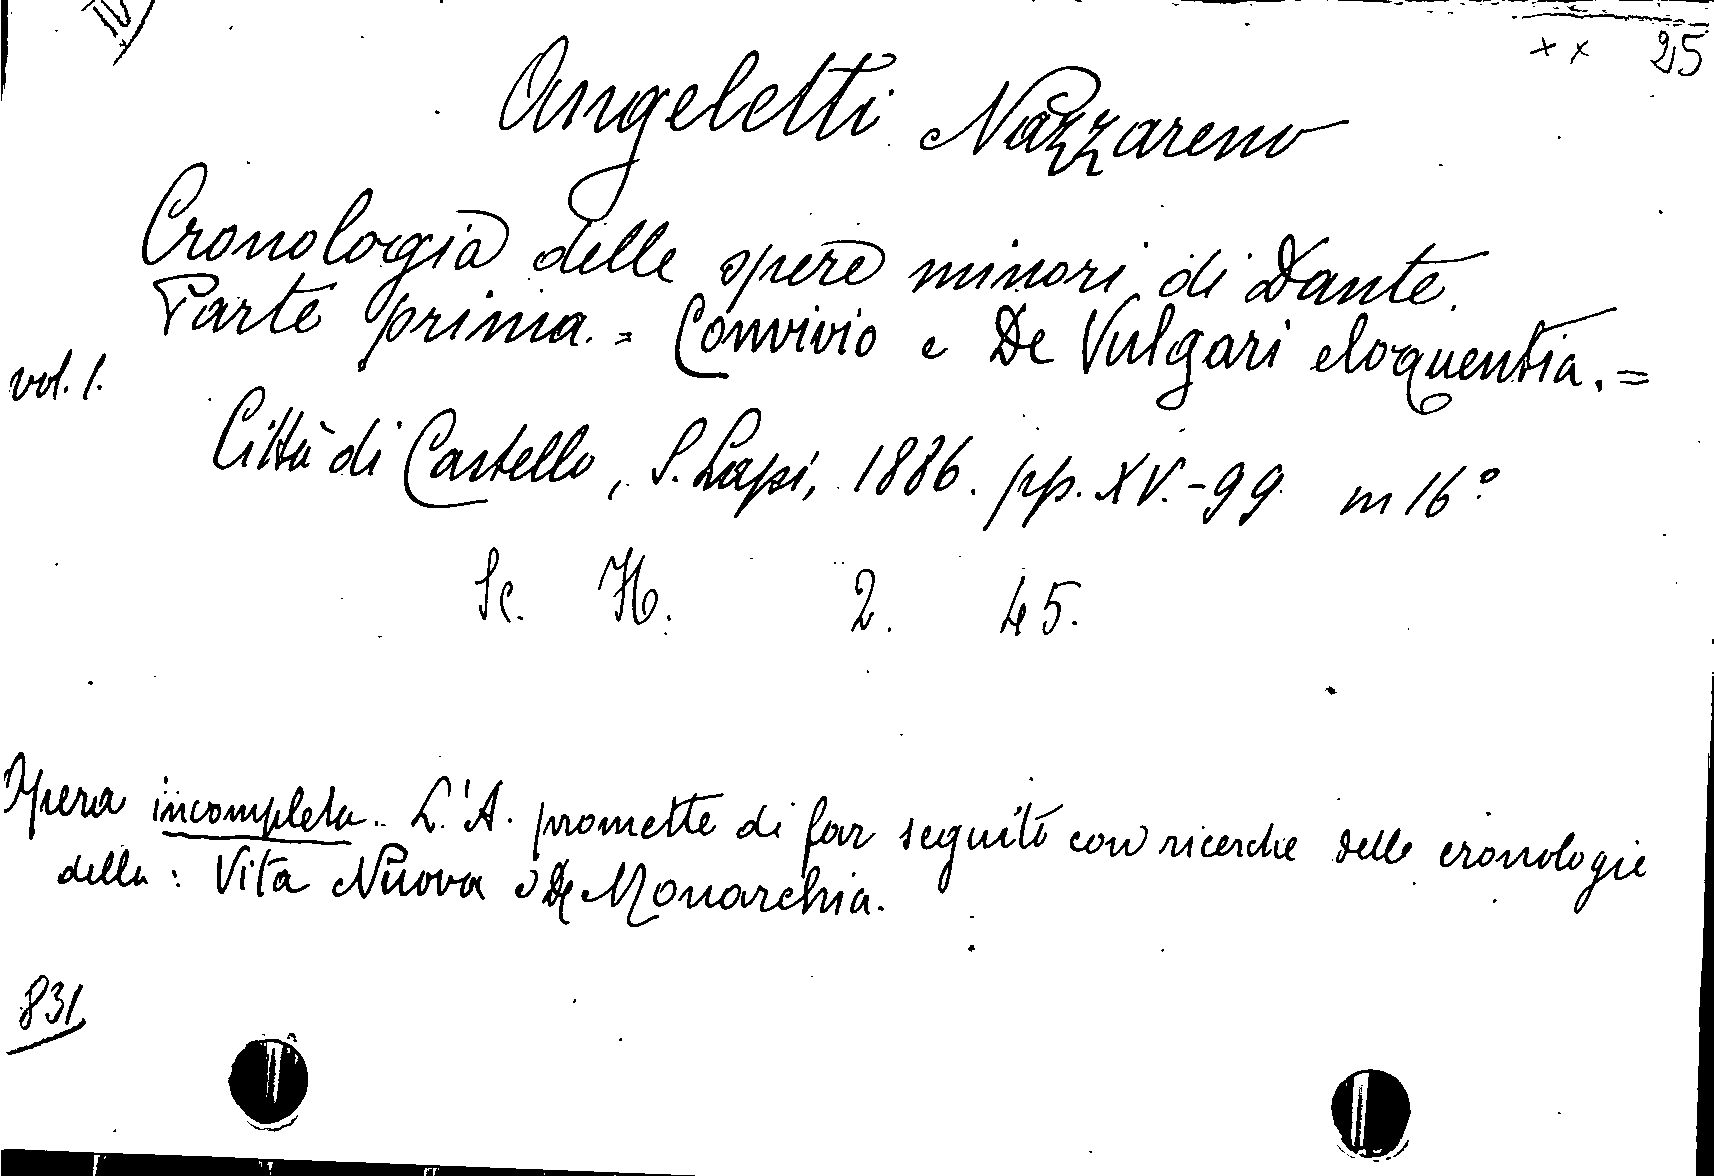 IV
x x 25
Angeletti Nazzareno
Cronologia delle opere minori di Dante.
Parte prima. = Convivio e De Vulgari eloquentia. =
vol. 1.
Città di Castello, S. Lapi, 1886. pp. XV.-99 in 16°
Sc. H. 2. 45.
Opera incompleta. L'A. promette di far seguito con ricerche delle cronologie
della: Vita Nuova e De Monarchia.
831